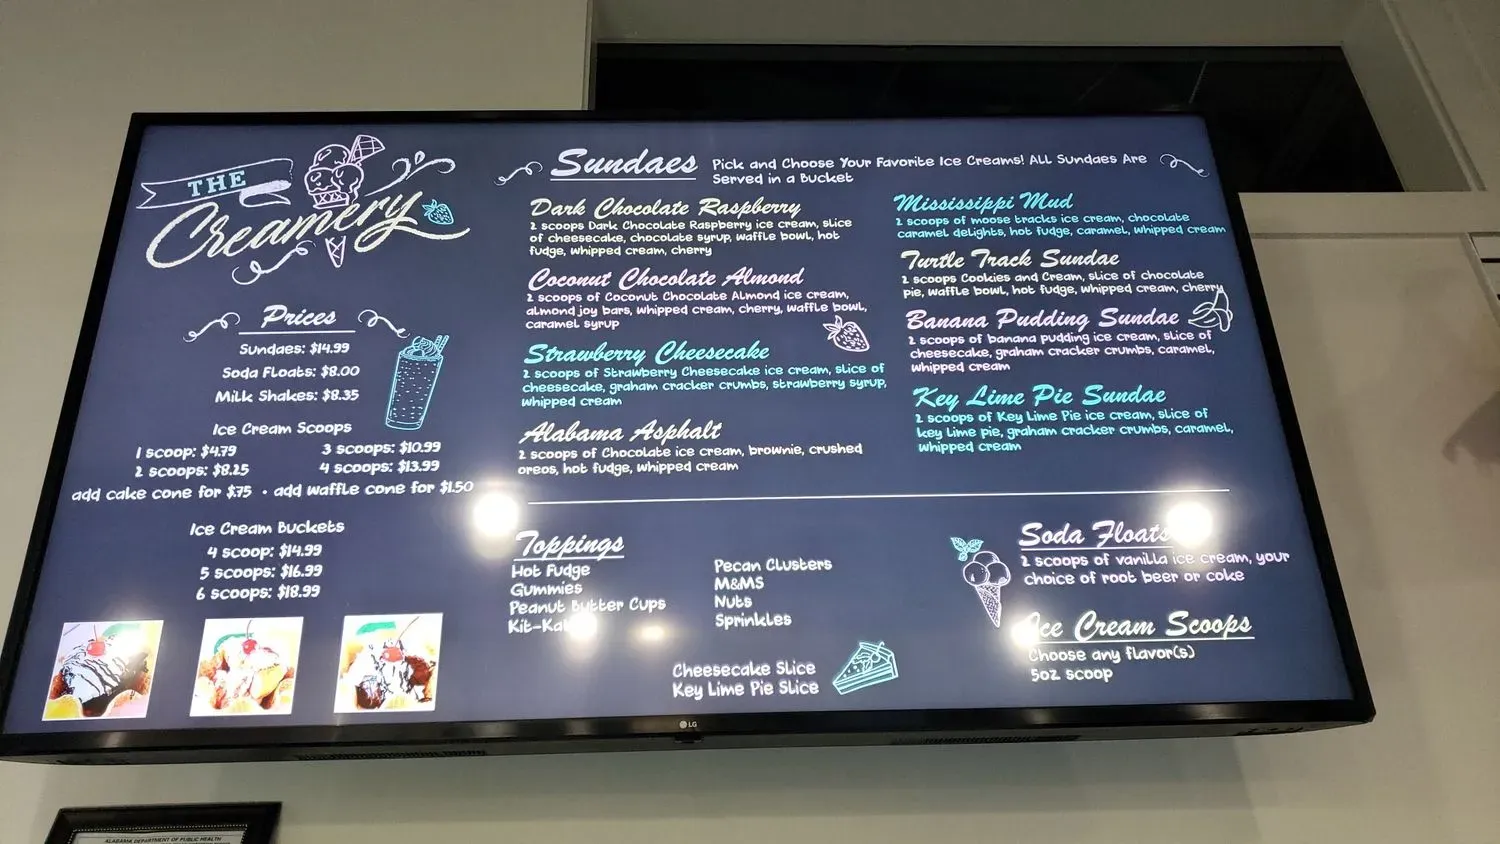 THE
Creamery
Prices
Sundaes: $14.99
Soda Floats: $8.00
Milk Shakes: $8.35
Ice Cream Scoops
1 scoop: $4.79
2 scoops: $8.25
3 scoops: $10.99
4 scoops: $13.99
add cake cone for $.75 • add waffle cone for $1.50
Ice Cream Buckets
4 scoop: $14.99
5 scoops: $16.99
6 scoops: $18.99
Sundaes
Pick and Choose Your Favorite Ice Creams! ALL Sundaes Are
Served in a Bucket
Dark Chocolate Raspberry
2 scoops Dark Chocolate Raspberry ice cream, slice
of cheesecake, chocolate syrup, waffle bowl, hot
fudge, whipped cream, cherry
Coconut Chocolate Almond
2 scoops of Coconut Chocolate Almond ice cream,
almond joy bars, whipped cream, cherry, waffle bowl,
caramel syrup
Strawberry Cheesecake
2 scoops of Strawberry Cheesecake ice cream, slice of
cheesecake, graham cracker crumbs, strawberry syrup,
whipped cream
Alabama Asphalt
2 scoops of Chocolate ice cream, brownie, crushed
oreos, hot fudge, whipped cream
Mississippi Mud
2 scoops of moose tracks ice cream, chocolate
caramel delights, hot fudge, caramel, whipped cream
Turtle Track Sundae
2 scoops Cookies and Cream, slice of chocolate
pie, waffle bowl, hot fudge, whipped cream, cherry
Banana Pudding Sundae
2 scoops of banana pudding ice cream, slice of
cheesecake, graham cracker crumbs, caramel,
whipped cream
Key Lime Pie Sundae
2 scoops of Key Lime Pie ice cream, slice of
key lime pie, graham cracker crumbs, caramel,
whipped cream
Toppings
Hot Fudge
Gummies
Peanut Butter Cups
Pecan Clusters
M&MS
Nuts
Sprinkles
Cheesecake Slice
Key Lime Pie Slice
Soda Floats
2 scoops of vanilla ice cream, your
choice of root beer or coke
Ice Cream Scoops
Choose any flavor(s)
5oz scoop
LG
ALABAMA DEPARTMENT OF PUBLIC HEALTH